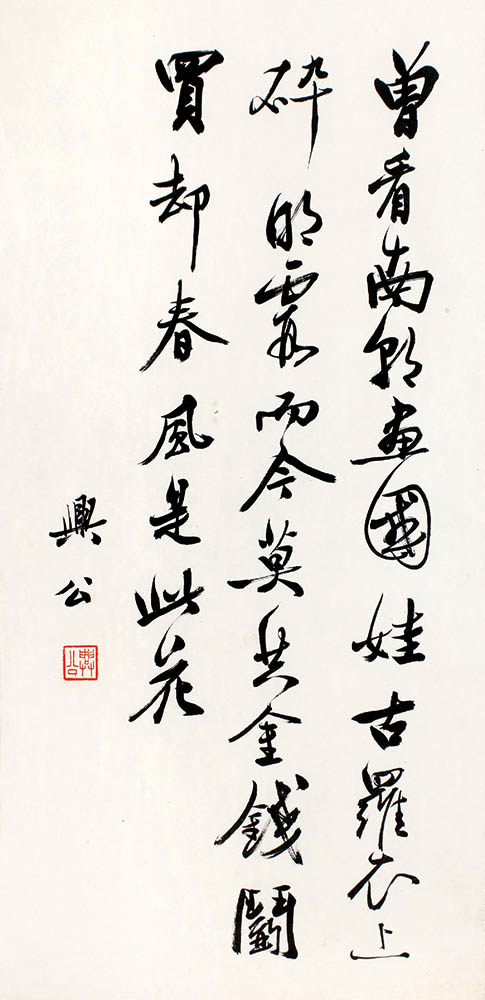 曾看南朝畫國娃古羅衣上
碎明霞而今莫共金錢鬭
買却春風是此花
興公
興公